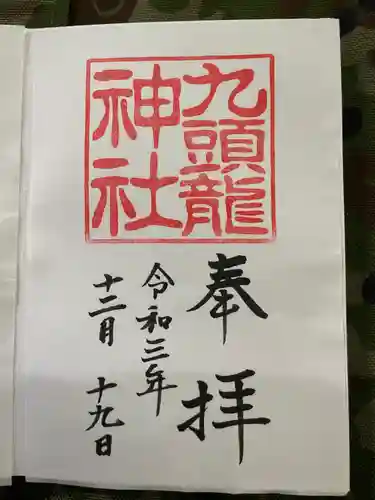 九頭龍
神社
奉拝
令和三年
十二月 十九日